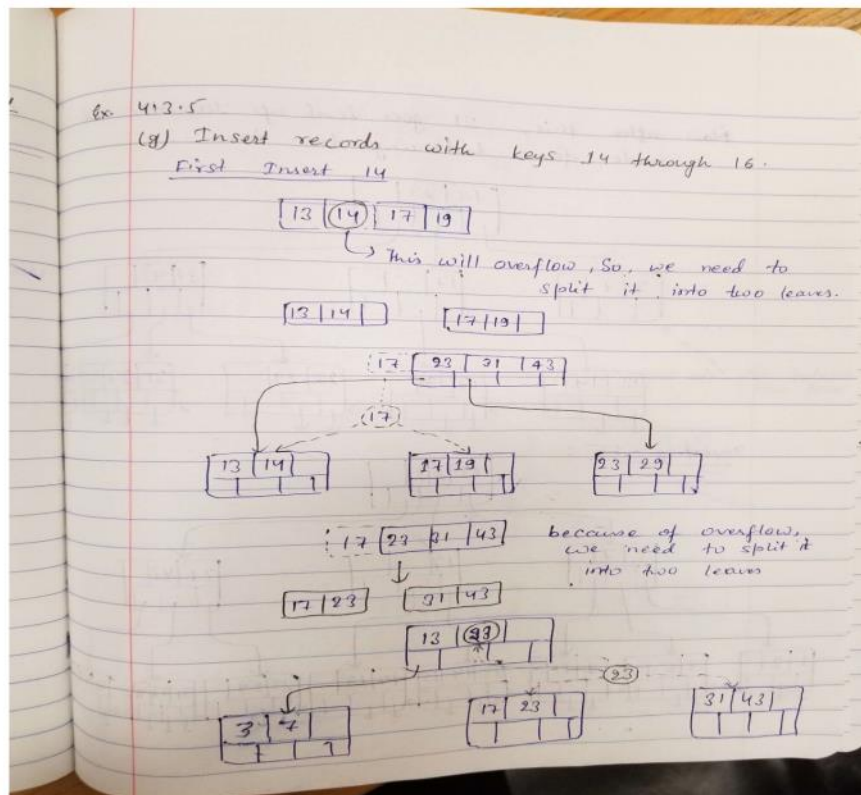 Ex. 4.3.5
(g) Insert records with keys 14 through 16.
First Insert 14
13 14 17 19
This will overflow, So, we need to
split it into two leaves.
13 14 17 19
17 23 31 43
17
13 14 17 19 23 29
17 23 31 43 because of overflow,
we need to split it
into two leaves
17 23 31 43
13 23
23
3 7 17 23 31 43